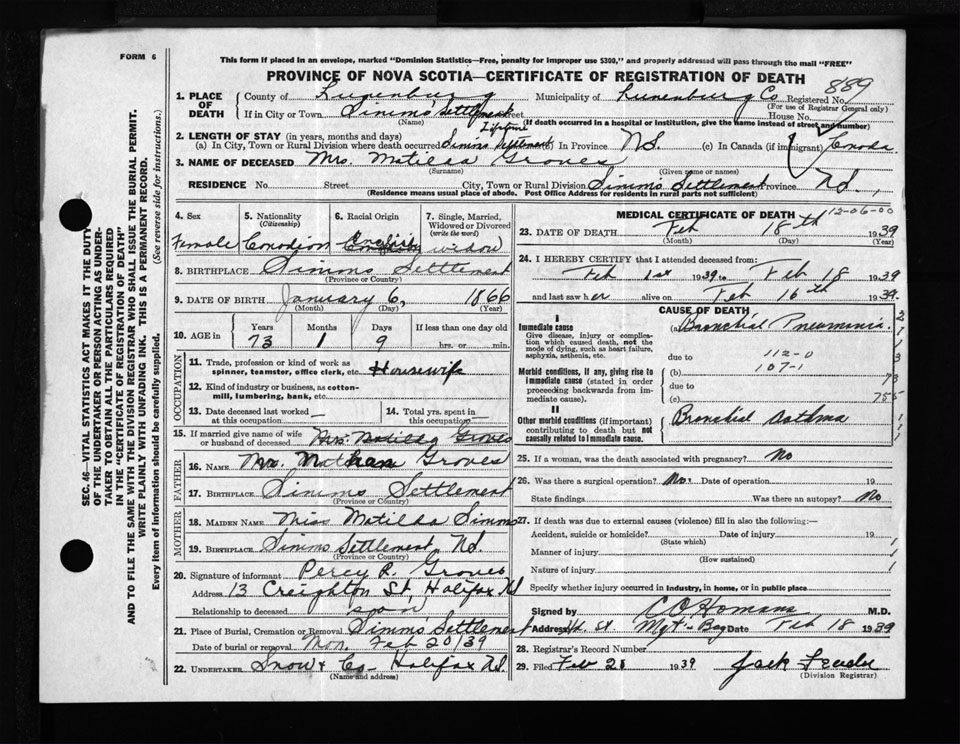 FORM 6
This form if placed in an envelope, marked "Dominion Statistics—Free, penalty for improper use $300," and properly addressed will pass through the mail "FREE"
PROVINCE OF NOVA SCOTIA—CERTIFICATE OF REGISTRATION OF DEATH
889
1. PLACE OF DEATH
County of Lunenburg Municipality of Lunenburg Co Registered No.
(For use of Registrar General only)
If in City or Town Simms' Settlement Street House No.
(Name) (If death occurred in a hospital or institution, give the name instead of street and number)
2. LENGTH OF STAY (in years, months and days) Lifetime
(a) In City, Town or Rural Division where death occurred Simms Settlement In Province N.S. (c) In Canada (if immigrant) Canada
3. NAME OF DECEASED Mrs. Matilda Groves
(Surname) (Given name or names)
RESIDENCE No. Street City, Town or Rural Division Simms Settlement Province N.S.
(Residence means usual place of abode. Post Office Address for residents in rural parts not sufficient)
SEC. 46—VITAL STATISTICS ACT MAKES IT THE DUTY
OF THE UNDERTAKER OR PERSON ACTING AS UNDER-
TAKER TO OBTAIN ALL THE PARTICULARS REQUIRED
IN THE "CERTIFICATE OF REGISTRATION OF DEATH"
AND TO FILE THE SAME WITH THE DIVISION REGISTRAR WHO SHALL ISSUE THE BURIAL PERMIT.
WRITE PLAINLY WITH UNFADING INK. THIS IS A PERMANENT RECORD.
Every item of information should be carefully supplied. (See reverse side for instructions.)
4. Sex 5. Nationality (Citizenship) 6. Racial Origin 7. Single, Married, Widowed or Divorced (write the word)
Female Canadian English widow
8. BIRTHPLACE Simms Settlement
(Province or Country)
9. DATE OF BIRTH January 6, 1866
(Month) (Day) (Year)
10. AGE in Years Months Days If less than one day old
73 1 9 hrs. or min.
OCCUPATION
11. Trade, profession or kind of work as spinner, teamster, office clerk, etc. Housewife
12. Kind of industry or business, as cotton-mill, lumbering, bank, etc.
13. Date deceased last worked at this occupation —
14. Total yrs. spent in this occupation —
15. If married give name of wife or husband of deceased Mrs. Matilda Groves
FATHER
16. Name Mr. Nathan Groves
17. Birthplace Simms Settlement
(Province or Country)
MOTHER
18. MAIDEN NAME Miss Matilda Simms
19. BIRTHPLACE Simms Settlement N.S.
(Province or Country)
20. Signature of informant Percy R. Groves
Address 13 Creighton St, Halifax N.S
Relationship to deceased
21. Place of Burial, Cremation or Removal Simms Settlement
Date of burial or removal Mon. Feb 20/39
22. UNDERTAKER Snow & Co - Halifax N.S.
(Name and address)
MEDICAL CERTIFICATE OF DEATH
12-06-00
23. DATE OF DEATH Feb 18th 1939
(Month) (Day) (Year)
24. I HEREBY CERTIFY that I attended deceased from:
Feb 1st 1939 to Feb 18 1939
and last saw her alive on Feb 16th 1939.
CAUSE OF DEATH
I
Immediate cause
Give disease, injury or complication which caused death, not the mode of dying, such as heart failure, asphyxia, asthenia, etc.
(a) Bronchial Pneumonia
due to 112-0
Morbid conditions, if any, giving rise to immediate cause (stated in order proceeding backwards from immediate cause).
(b) 107-1
due to
(c)
II
Other morbid conditions (if important) contributing to death but not causally related to immediate cause.
Bronchial Asthma
25. If a woman, was the death associated with pregnancy? No
26. Was there a surgical operation? No. Date of operation 19
State findings Was there an autopsy? No
27. If death was due to external causes (violence) fill in also the following:—
Accident, suicide or homicide? Date of injury 19
(State which)
Manner of injury
(How sustained)
Nature of injury
Specify whether injury occurred in Industry, in home, or in public place
Signed by C O Homans M.D.
Address Hd. St. Mgt - Bay Date Feb 18 1939
28. Registrar's Record Number
29. Filed Feb 21 1939 Jack
(Division Registrar)